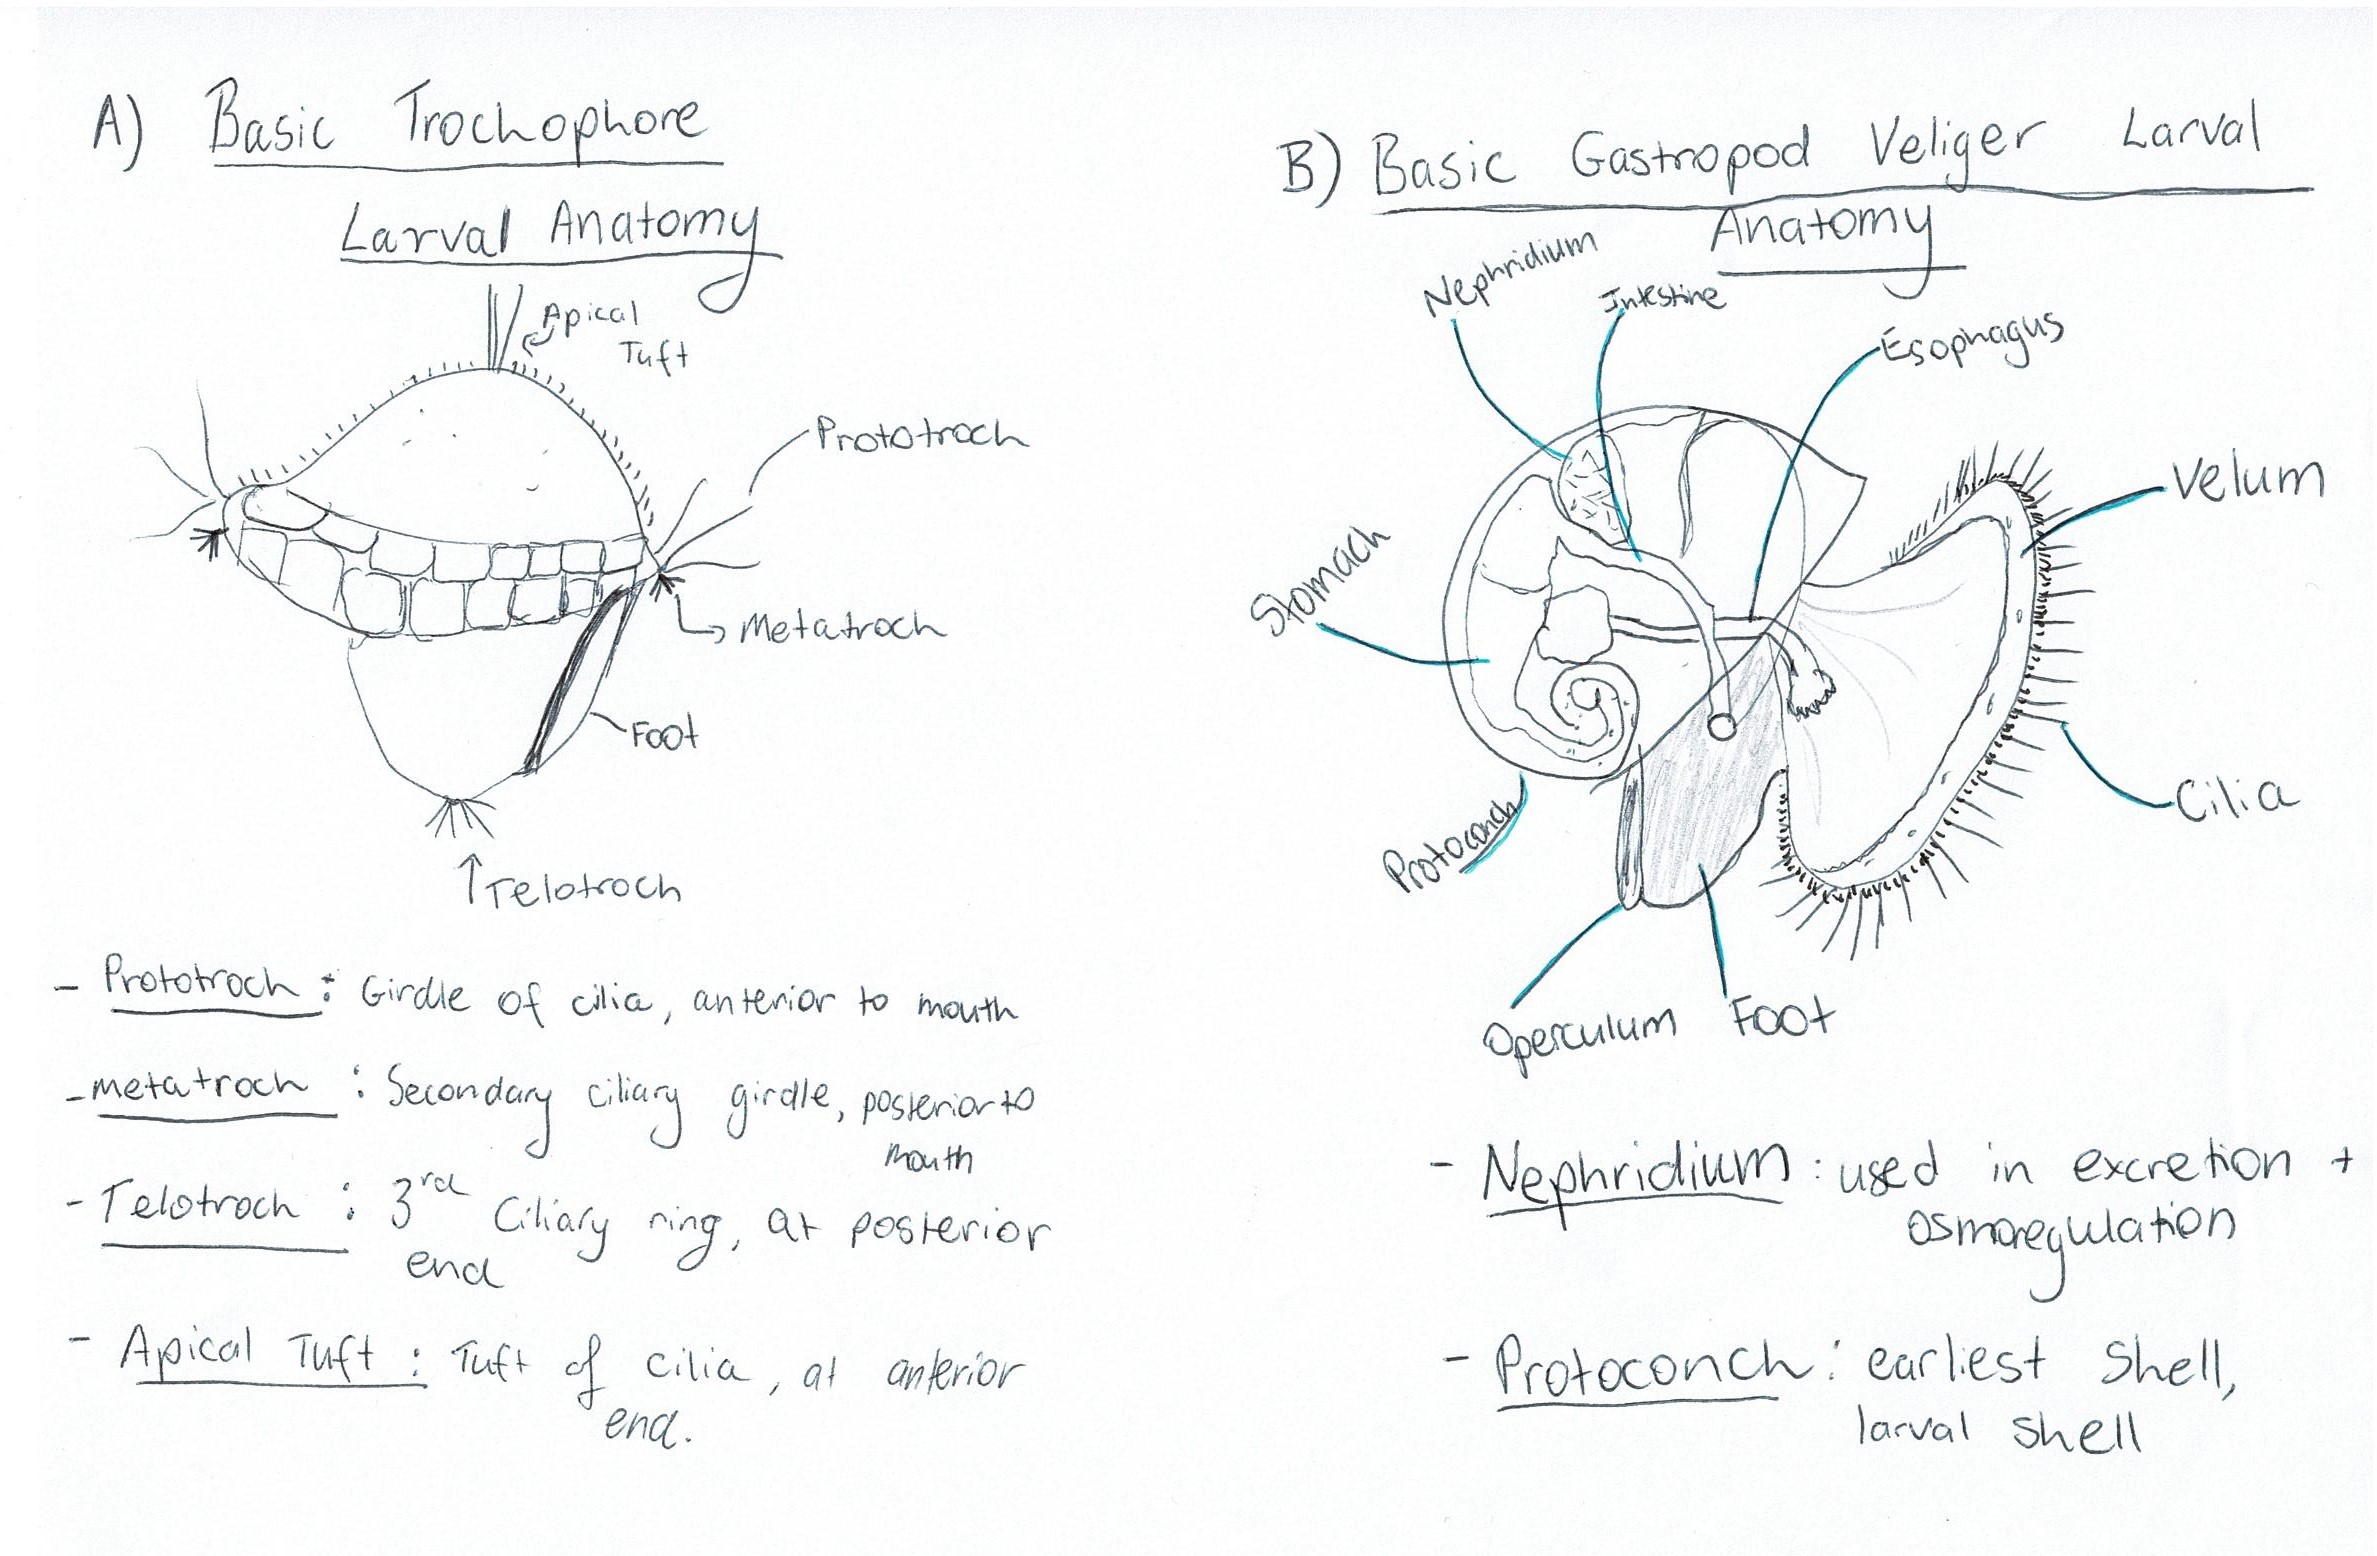 A) Basic Trochophore
Larval Anatomy
Apical
Tuft
Prototroch
Metatroch
Foot
Telotroch
- Prototroch : Girdle of cilia, anterior to mouth
- metatroch : Secondary ciliary girdle, posterior to
mouth
- Telotroch : 3rd Ciliary ring, at posterior
end
- Apical Tuft : Tuft of cilia, at anterior
end.
B) Basic Gastropod Veliger Larval
Anatomy
Nephridium
Intestine
Esophagus
Velum
Stomach
Cilia
Protoconch
Operculum
Foot
- Nephridium : used in excretion +
osmoregulation
- Protoconch : earliest shell,
larval shell